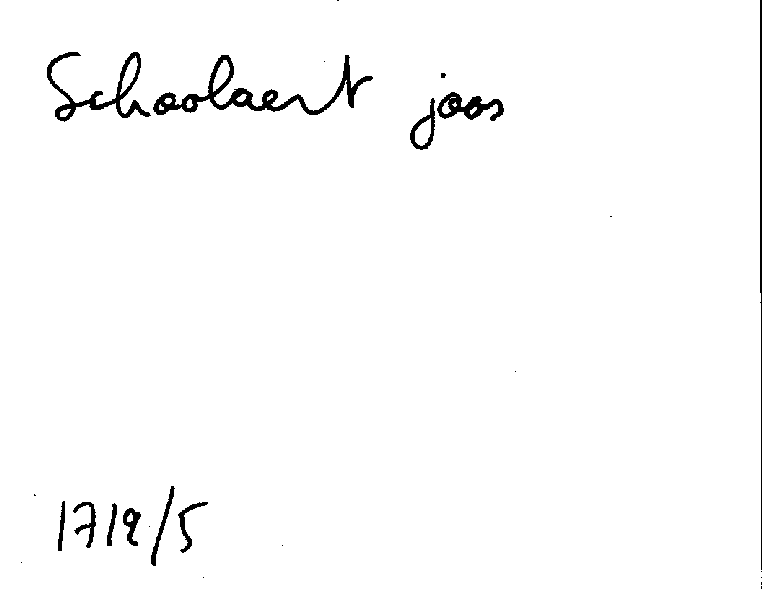 Schoolaert joos
1712/5